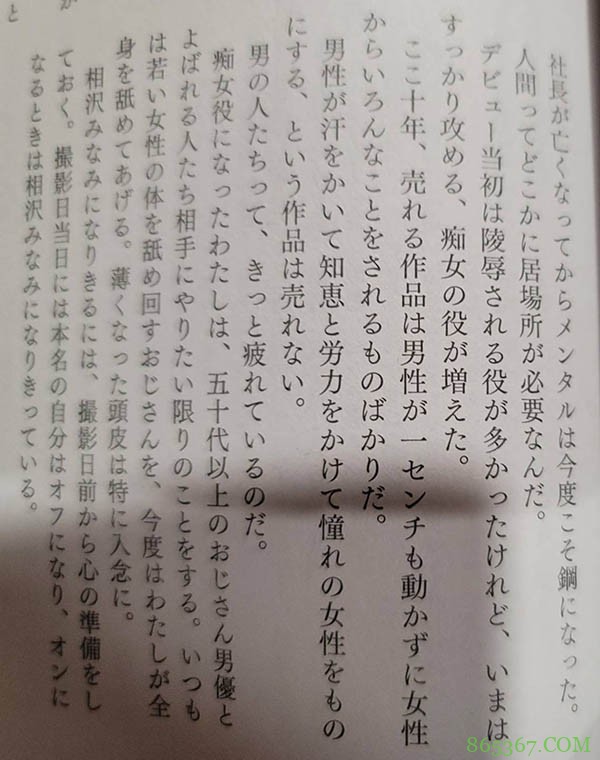 社長が亡くなってからメンタルは今度こそ鋼になった。
人間ってどこかに居場所が必要なんだ。
デビュー当初は陵辱される役が多かったけれど、いまは
すっかり攻める、痴女の役が増えた。
ここ十年、売れる作品は男性が一センチも動かずに女性
からいろんなことをされるものばかりだ。
男性が汗をかいて知恵と労力をかけて憧れの女性をもの
にする、という作品は売れない。
男の人たちって、きっと疲れているのだ。
痴女役になったわたしは、五十代以上のおじさん男優と
よばれる人たち相手にやりたい限りのことをする。いつも
は若い女性の体を舐め回すおじさんを、今度はわたしが全
身を舐めてあげる。薄くなった頭皮は特に入念に。
相沢みなみになりきるには、撮影日前から心の準備をし
ておく。撮影日当日には本名の自分はオフになり、オンに
なるときは相沢みなみになりきっている。
と
865367.COM